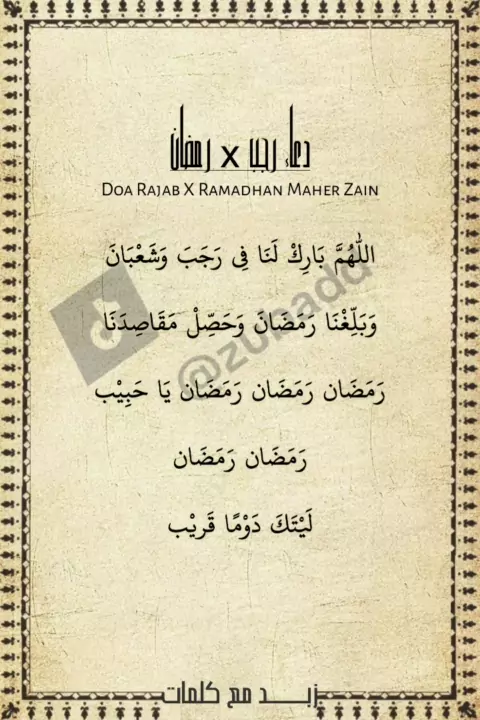 دعاء رجب x رمضان
DOA RAJAB X RAMADHAN MAHER ZAIN
اللّٰهُمَّ بَارِكْ لَنَا فِى رَجَبَ وَشَعْبَانَ
وَبَلِّغْنَا رَمَضَانَ وَحَصِّلْ مَقَاصِدَنَا
رَمَضَان رَمَضَان رَمَضَان يَا حَبِيْب
رَمَضَان رَمَضَان
لَيْتَكَ دَوْمًا قَرِيْب
زبد مع كلمات